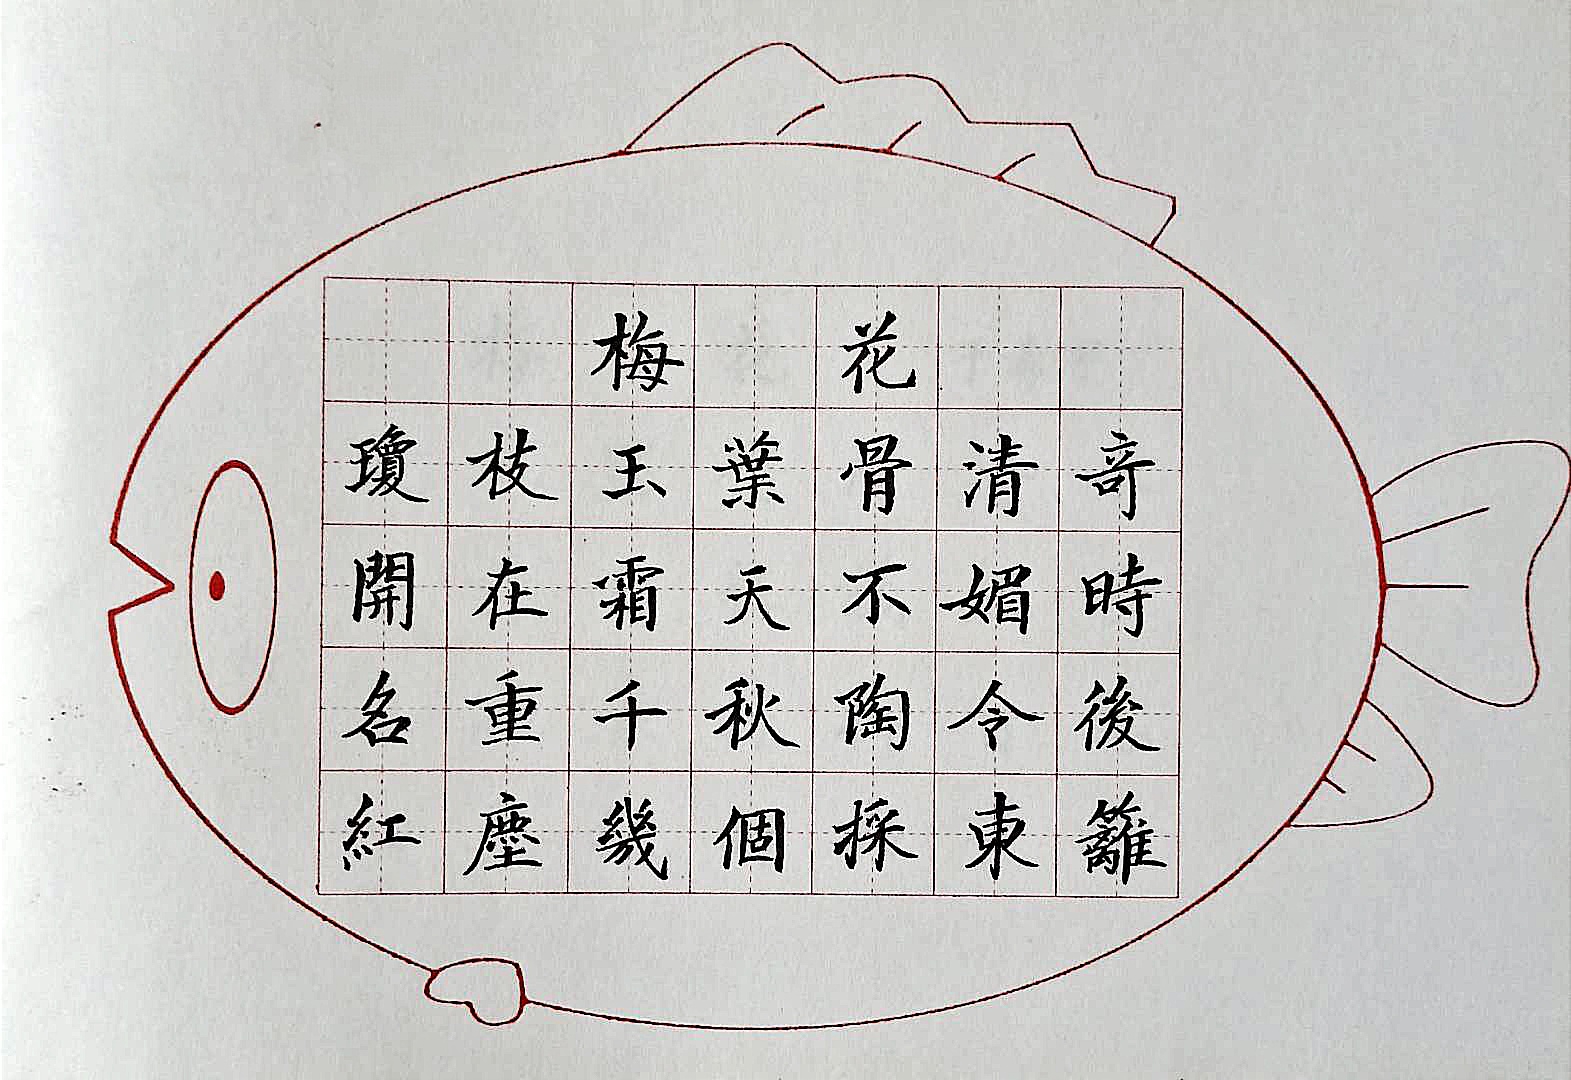 梅花
瓊枝玉葉骨清奇
開在霜天不媚時
名重千秋陶令後
紅塵幾個採東籬